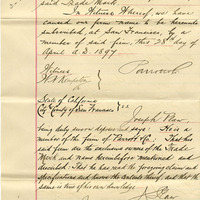 said Trade Mark.
In Witness Whereof, we have
caused our firm name to be hereunto
subscribed, at San Francisco, by
a member of said firm, this 28th day of
April A.D. 1897.
Witness
Parrott
State of California
City & County of San Francisco } ss
Joseph
being duly sworn deposes and says: He is a
member of the firm of Parrott & Co. That his
said firm are the exclusive owners of the Trade
Mark and name hereinbefore mentioned and
described. That he has read the foregoing claim and
specifications and knows the contents thereof, and that the
same is true of his own knowledge.